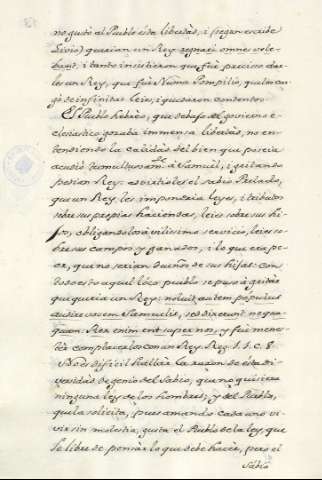 no gustó al Pueblo esta libertàd, i (segun escribe
Livio) querian un Rey: regnari omnes vole-
bant, i tanto insistieron que fuè preciso dar-
les un Rey, que fuè Numa Pompilio, que los car-
gò de infinitas leies, i quedaron contentos.
El Pueblo hebrèo, que debajo del govierno e-
clesiastico gozaba immensa libertàd, no en-
tendiendo la calidàd del bien que poseia
acudiò tumultuosam.te à Samuèl, i gritando
pedian Rey: advirtióles el sabio Prelado,
que un Rey les imponeria leyes, i tributos
sobre sus propias haciendas, leies sobre sus hi-
jos, obligandolos à vilissimo servicio, leies so-
bre sus campos y ganados, i lo que era peor
que no serian dueños de sus hijas: con
todo esto aquel loco pueblo se puso à gritàr
que queria un Rey: noluit autem populus
audire vocem Samuelis, sed dixerunt nequa-
quam: Rex enim erit super nos, y fuè menes-
tèr complacerlos con un Rey. Reg. l. 1. c. 8.
No es dificil hallàr la razon de esta di-
versidàd de genio del Sabio, que no quisiera
ninguna ley de los hombres; y del Pueblo,
que la solicita, pues amando cada uno vi-
vir sin molestia, gusta el Pueblo de la ley, que
le libre de pensàr lo que debe hacèr, pero el
Sabio